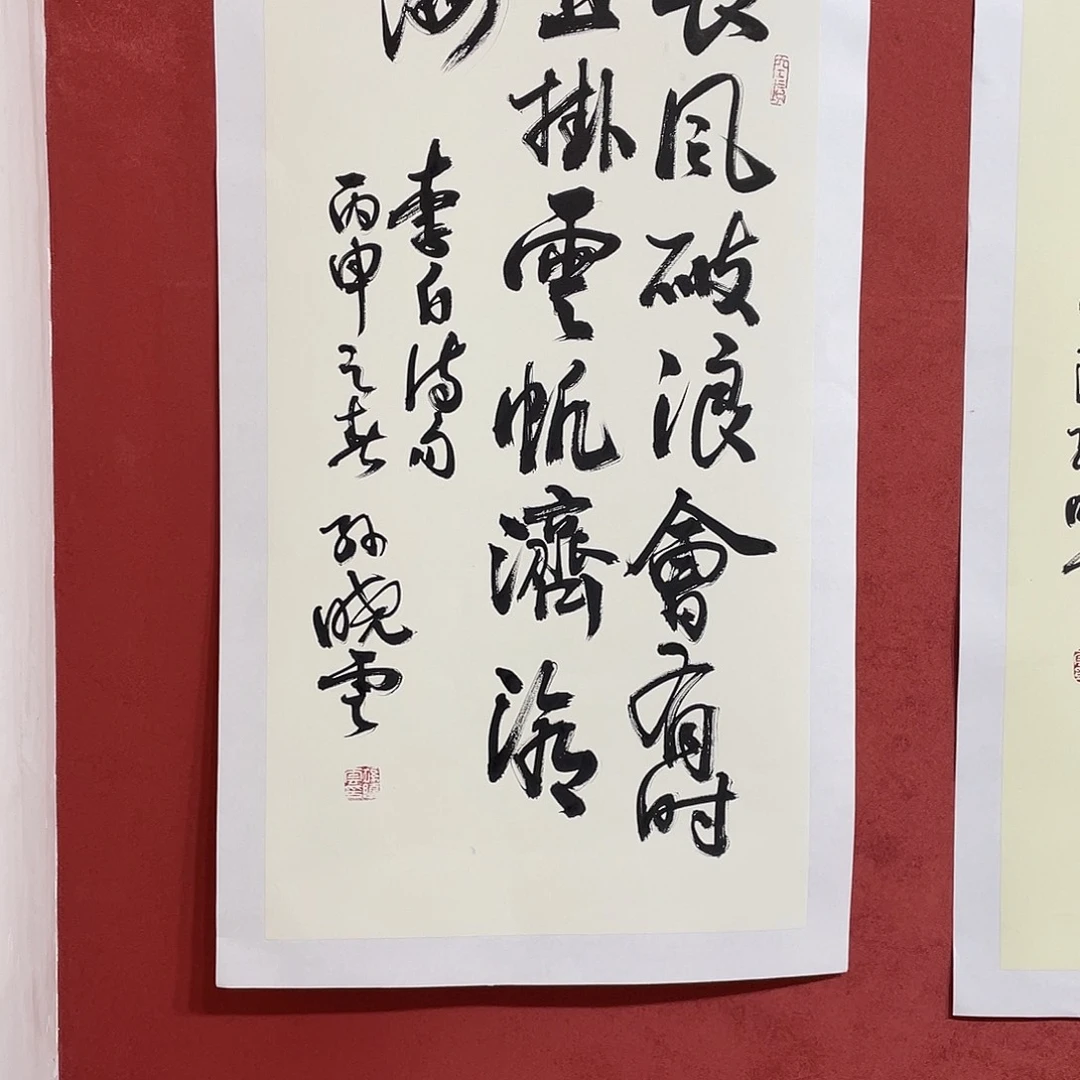 長风破浪會有时
直掛雲帆濟滄
海
李白诗句
丙申之春
孙晓雲